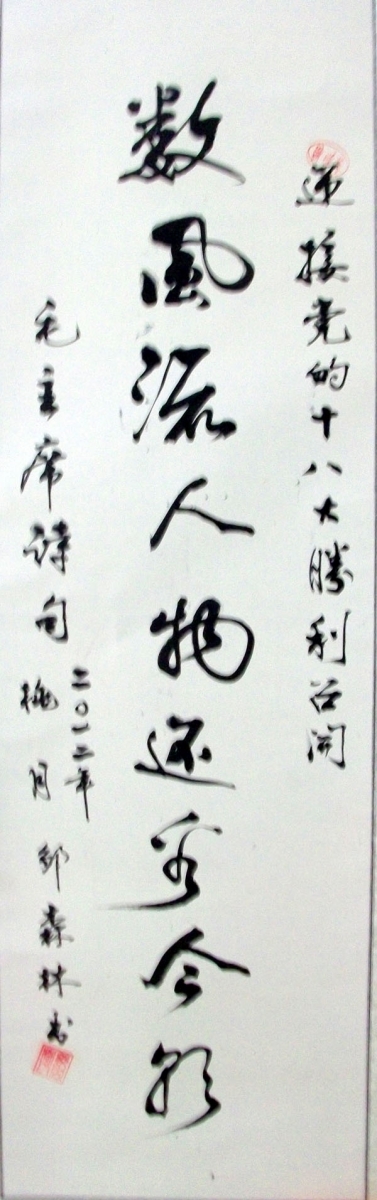 迎接党的十八大勝利召開
数風流人物还看今朝
毛主席詩句
二〇一二年
桃月 邹森林书